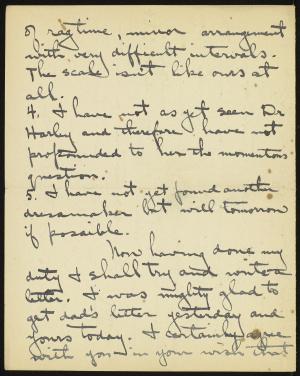 of ragtime, minor arrangement
with very difficult intervals.
The scale isn't like ours at
all.
4. I have not as yet seen Dr
Harley and therefore have not
propounded to her the momentous
question.
5. I have not yet found another
dressmaker but will tomorrow
if possible.
Now having done my
duty I shall try and write a
letter. I was mighty glad to
get dad's letter yesterday and
yours today. I certainly agree
with you in your wish that